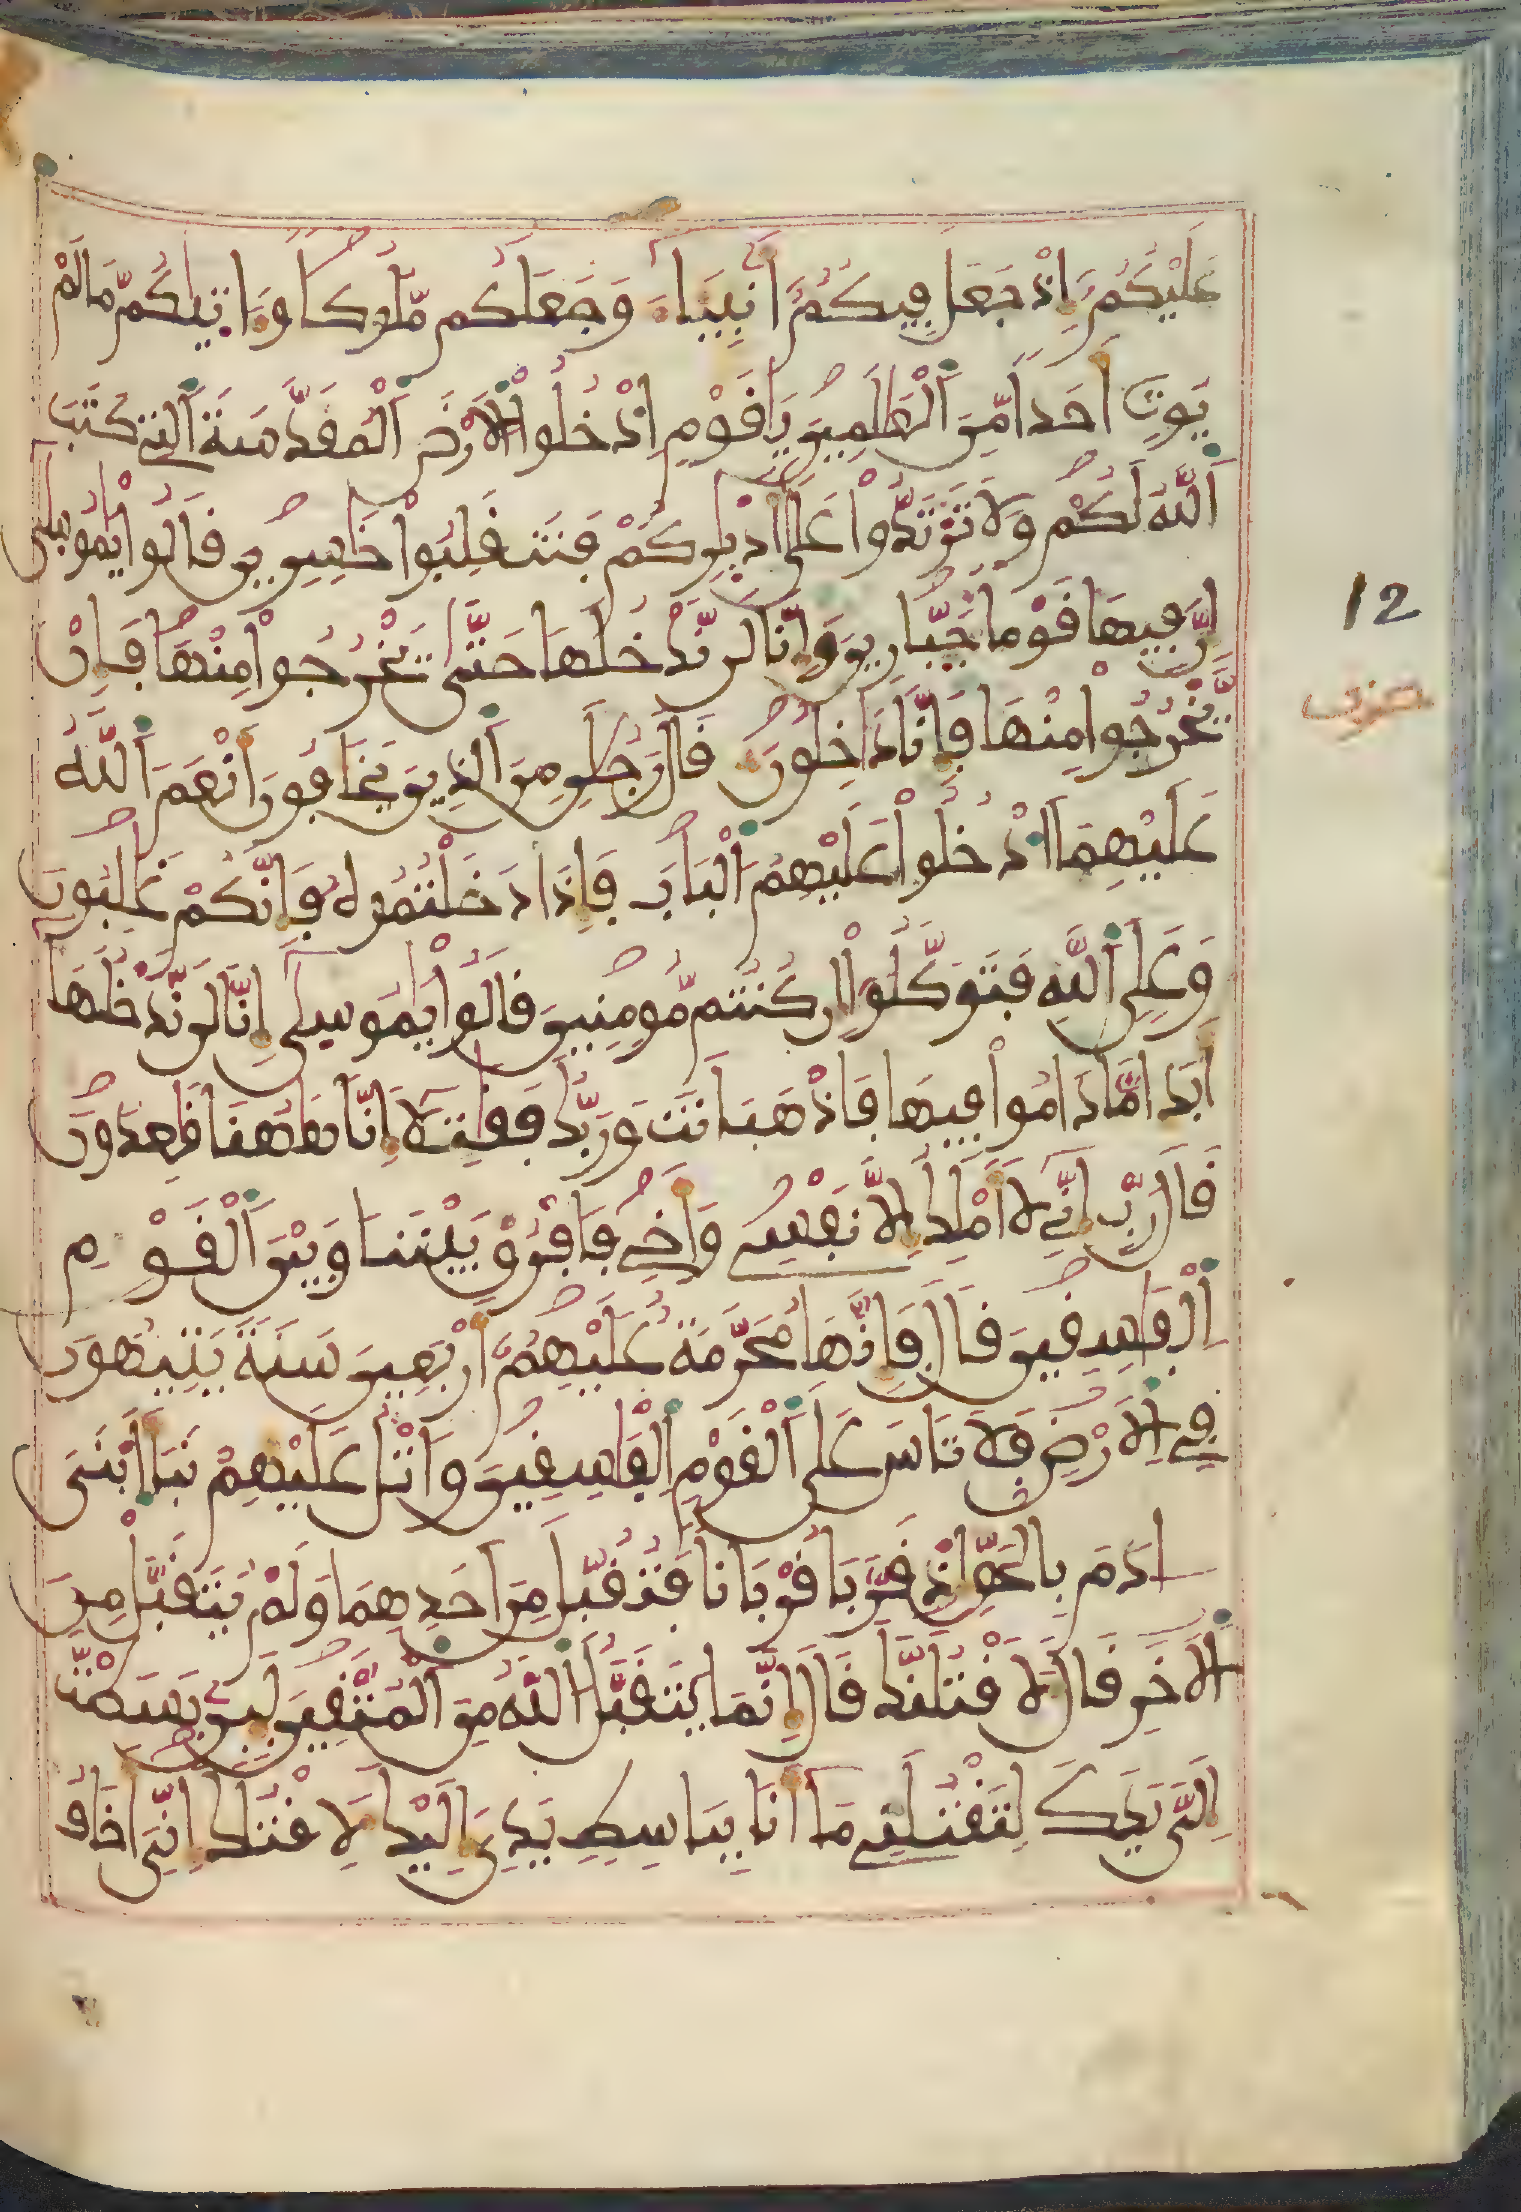 عَلَيْكُمُۥٓ إِذْ جَعَلَ فِيكُمُۥٓ أَنۢبِيَآءَ وَجَعَلَكُم مُّلُوكا وَءَاتَيٰكُم مَّا لَمْ
يُوتِ أَحَدا مِّنَ ٱلْعَٰلَمِينَ يَٰقَوْمِ ٱدْخُلُوا ٱلَارْضَ ٱلْمُقَدَّسَةَ ٱلتِے كَتَبَ
ٱللَّهُ لَكُمْ وَلَا تَرْتَدُّوا عَلَىٰٓ أَدْبٰرِكُمْ فَتَنقَلِبُوا خَٰسِرِينَ قَالُوا يَٰمُوسىٰٓ
إِنَّ فِيهَا قَوْما جَبَّارِينَ وَإِنَّا لَن نَّدْخُلَهَا حَتَّىٰ يَخْرُجُوا مِنْهَا فَإِنْ
يَّخْرُجُوا مِنْهَا فَإِنَّا دَٰخِلُونَ قَالَ رَجُلَٰنِ مِنَ ٱلذِينَ يَخَافُونَ أَنْعَمَ ٱللَّهُ
عَلَيْهِمَا ٱدْخُلُوا عَلَيْهِمُ ٱلْبَابَ فَإِذَا دَخَلْتُمُوهُ فَإِنَّكُمْ غَٰلِبُونَ
وَعَلَى ٱللَّهِ فَتَوَكَّلُوٓا إِن كُنتُم مُّومِنِينَ قَالُوا يَٰمُوسىٰٓ إِنَّا لَن نَّدْخُلَهَآ
أَبَدا مَّا دَامُوا فِيهَا فَاذْهَبَ اَنتَ وَرَبُّكَ فَقَٰتِلَآ إِنَّا هَٰهُنَا قَٰعِدُونَ
قَالَ رَبِّ إِنِّے لَآ أَمْلِكُ إِلَّا نَفْسِے وَأَخِے فَافْرُقْ بَيْنَنَا وَبَيْنَ ٱلْقَوْمِ
ٱلْفَٰسِقِينَ قَالَ فَإِنَّهَا مُحَرَّمَةٌ عَلَيْهِمُۥٓ أَرْبَعِينَ سَنَةً يَتِيهُونَ
فِے ٱلَارْضِ فَلَا تَاسَ عَلَى ٱلْقَوْمِ ٱلْفَٰسِقِينَ وَاتْلُ عَلَيْهِمْ نَبَأَ ٱبْنَىَ
ادَمَ بِالْحَقِّ إِذْ قَرَّبَا قُرْبَانا فَتُقُبِّلَ مِنَ اَحَدِهِمَا وَلَمْ يُتَقَبَّلْ مِنَ
ٱلَاخَرِ قَالَ لَأَقْتُلَنَّكَ قَالَ إِنَّمَا يَتَقَبَّلُ ٱللَّهُ مِنَ ٱلْمُتَّقِينَ لَئِنۢ بَسَطتَ
إِلَىَّ يَدَكَ لِتَقْتُلَنِے مَآ أَنَا بِبَاسِطٍ يَدِىَ إِلَيْكَ لِأَقْتُلَكَ إِنِّىَ أَخَافُ
12
حزب